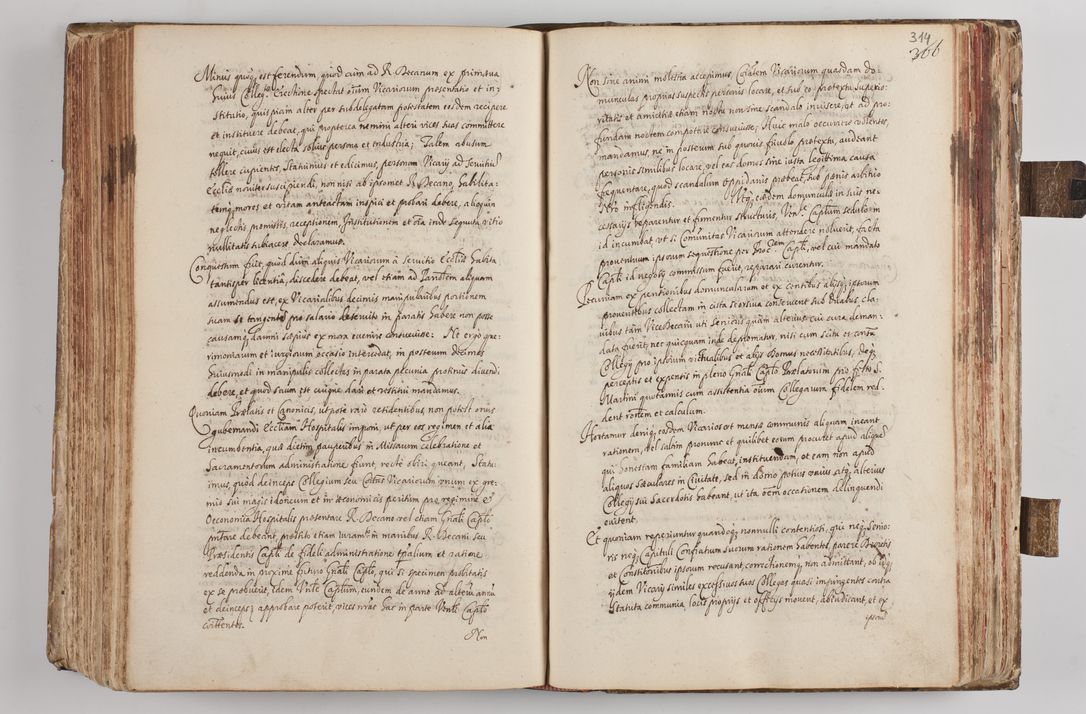 Minus quoq est ferendum, quod cum ad R. Decanum ex primæua
huius Collegij erectione spectat omnium Vicariorum præsentatio et in=
stitutio, quispiam alter per subdelegatam potestatem eosdem recipere
et instituere debeat, qui propterea nemini alteri vices suas committere
nequit, cuius est electa solius persona et industria; Talem abusum
tollere cupientes, Statuimus et edicimus, personam Vicarij ad seruitiũ
Ecclesiæ nouiter suscipiendi, non nisi ab ipsomet R. Decano, habilita=
temq mores et vitam antactam inspici et probari debere, alioquin
neglectis præmissis, receptionem, Institutionem et omnia inde sequuta vitio
nullitatis subiacere declaramus.
Conquestum fuit, quod dum aliquis Vicariorum à seruitio Ecclesiæ habita
tantisper licentia, discedere debeat, vel etiam ad Pariochiam aliquam
assumendus est, ex Vicarialibus decimis manipularibus portionem
suam se tangentem pro salario deseruito in parata habere non posse
causamq damni sæpius ex mora euenire consueuisse: Ne ergo que=
rimoniarum et iurgiorum occasio intercedat, in posterum decimas
huiusmodi in manipulis collectas in parata pecunia protinus diuendi
debere, et quod suum est cuique dari et restitui mandamus.
Quoniam Prælatis et Canonicis, utpote raro residentibus non potest onus
gubernandi Ecclesiam Hospitalis imponi, ut per eos regimen et alia
incumbentia, quæ dictim pauperibus in Missarum celebratione et
Sacramentorum administratione fiunt, recte obiri queant, Statu=
imus, quod deinceps Collegium seu Cætus Vicariorum unum ex gre=
mio sui magis idoneum et in œconomicis peritum pro regimine et
Oeconomia Hospitalis præsentare R. Decano vel etiam Gnali Caplo
præsentare debeant, præstito etiam iuramento in manibus R. Decani seu
Præsidentis Capli de fideli administratione temporalium et ratione
reddenda in proxime futuro Gnali Caplo, qui si specimen probitatis
ex se probuerit, idem Vnble Caplum, eundem de anno ad alterum annũ
et deinceps approbare poterit, vices nr̃as hac in parte Vnbli Caplo
committentes.
Non

314
366
Non sine animi molestia accepimus, Cætum Vicariorum quasdam do=
munculas proprias suspectis personis locare, et sub eo prætextu superio=
ritatis et amicitiæ etiam noctu non sine scandalo inuisere, et ad pro=
fundam noctem compotare consueuisse; Huic malo occurrere volentes,
mandamus, ne in posterum sub quouis friuolo prætextu, audeant
personis similibus locare, vel eas domos sine iusta legittima causa
frequentare, quod scandalum oppidanis præbeat, sub pœnis arbitrio
Nr̃o infligendis. Utq eædem domunculæ in suis ne=
cessarijs reparentur et firmentur structuris, Vnble Caplum sedulo in
id incumbat, ut si Communitas Vicariorum attendere noluerit, facta
prouentuum ipsorum sequestratione per Procrem Capli, vel cui mandato
Capli id negotij commissum fuerit, reparari curentur.
Pecuniam ex pensionibus domuncularum et ex censibus alijsq ipsorum
prouentibus collectam in cista seorsiua conseruent sub duabus cla=
uibus tam ViceDecani uti Senioris quam alterius cui cura deman=
data fuerit, nec quicquam inde depromatur, nisi cum scitu et consensu
Collegij pro ipsorum victualibus et alijs Domus necessitatibus, deq
perceptis et expensis in pleno Gnali Caplo Prælatorum pro festo S.
Martini quotannis cum assistentia omnium Collegarum fidelem red=
dent rationem et calculum.
Hortamur deniq eosdem Vicarios ut mensæ communis aliquam ineant
rationem, vel saltim pronunc et quilibet eorum procuret apud aliquẽ
qui honestam familiam habeat, instituendam, et eam non apud
aliquos sæculares in Ciuitate, sed in domo potius unius atq alterius
Collegij sui Sacerdotis habeant, ut ita omnem occasionem delinquendi
euitent.
Et quoniam reperiuntur quandoq nonnulli contentiosi, qui neq senio=
ris neq Capituli Confratrum suorum rationem habentes, parere Decretis
et Constitõnibus ipsorum recusant, correctionemq non admittant, ob idq
ijdem Vicarij similes excessiuos suos Collegas quasi impingentes contra
statuta communia, locis proprijs et officijs mouent, abiudicant, et ex
ipsorũ